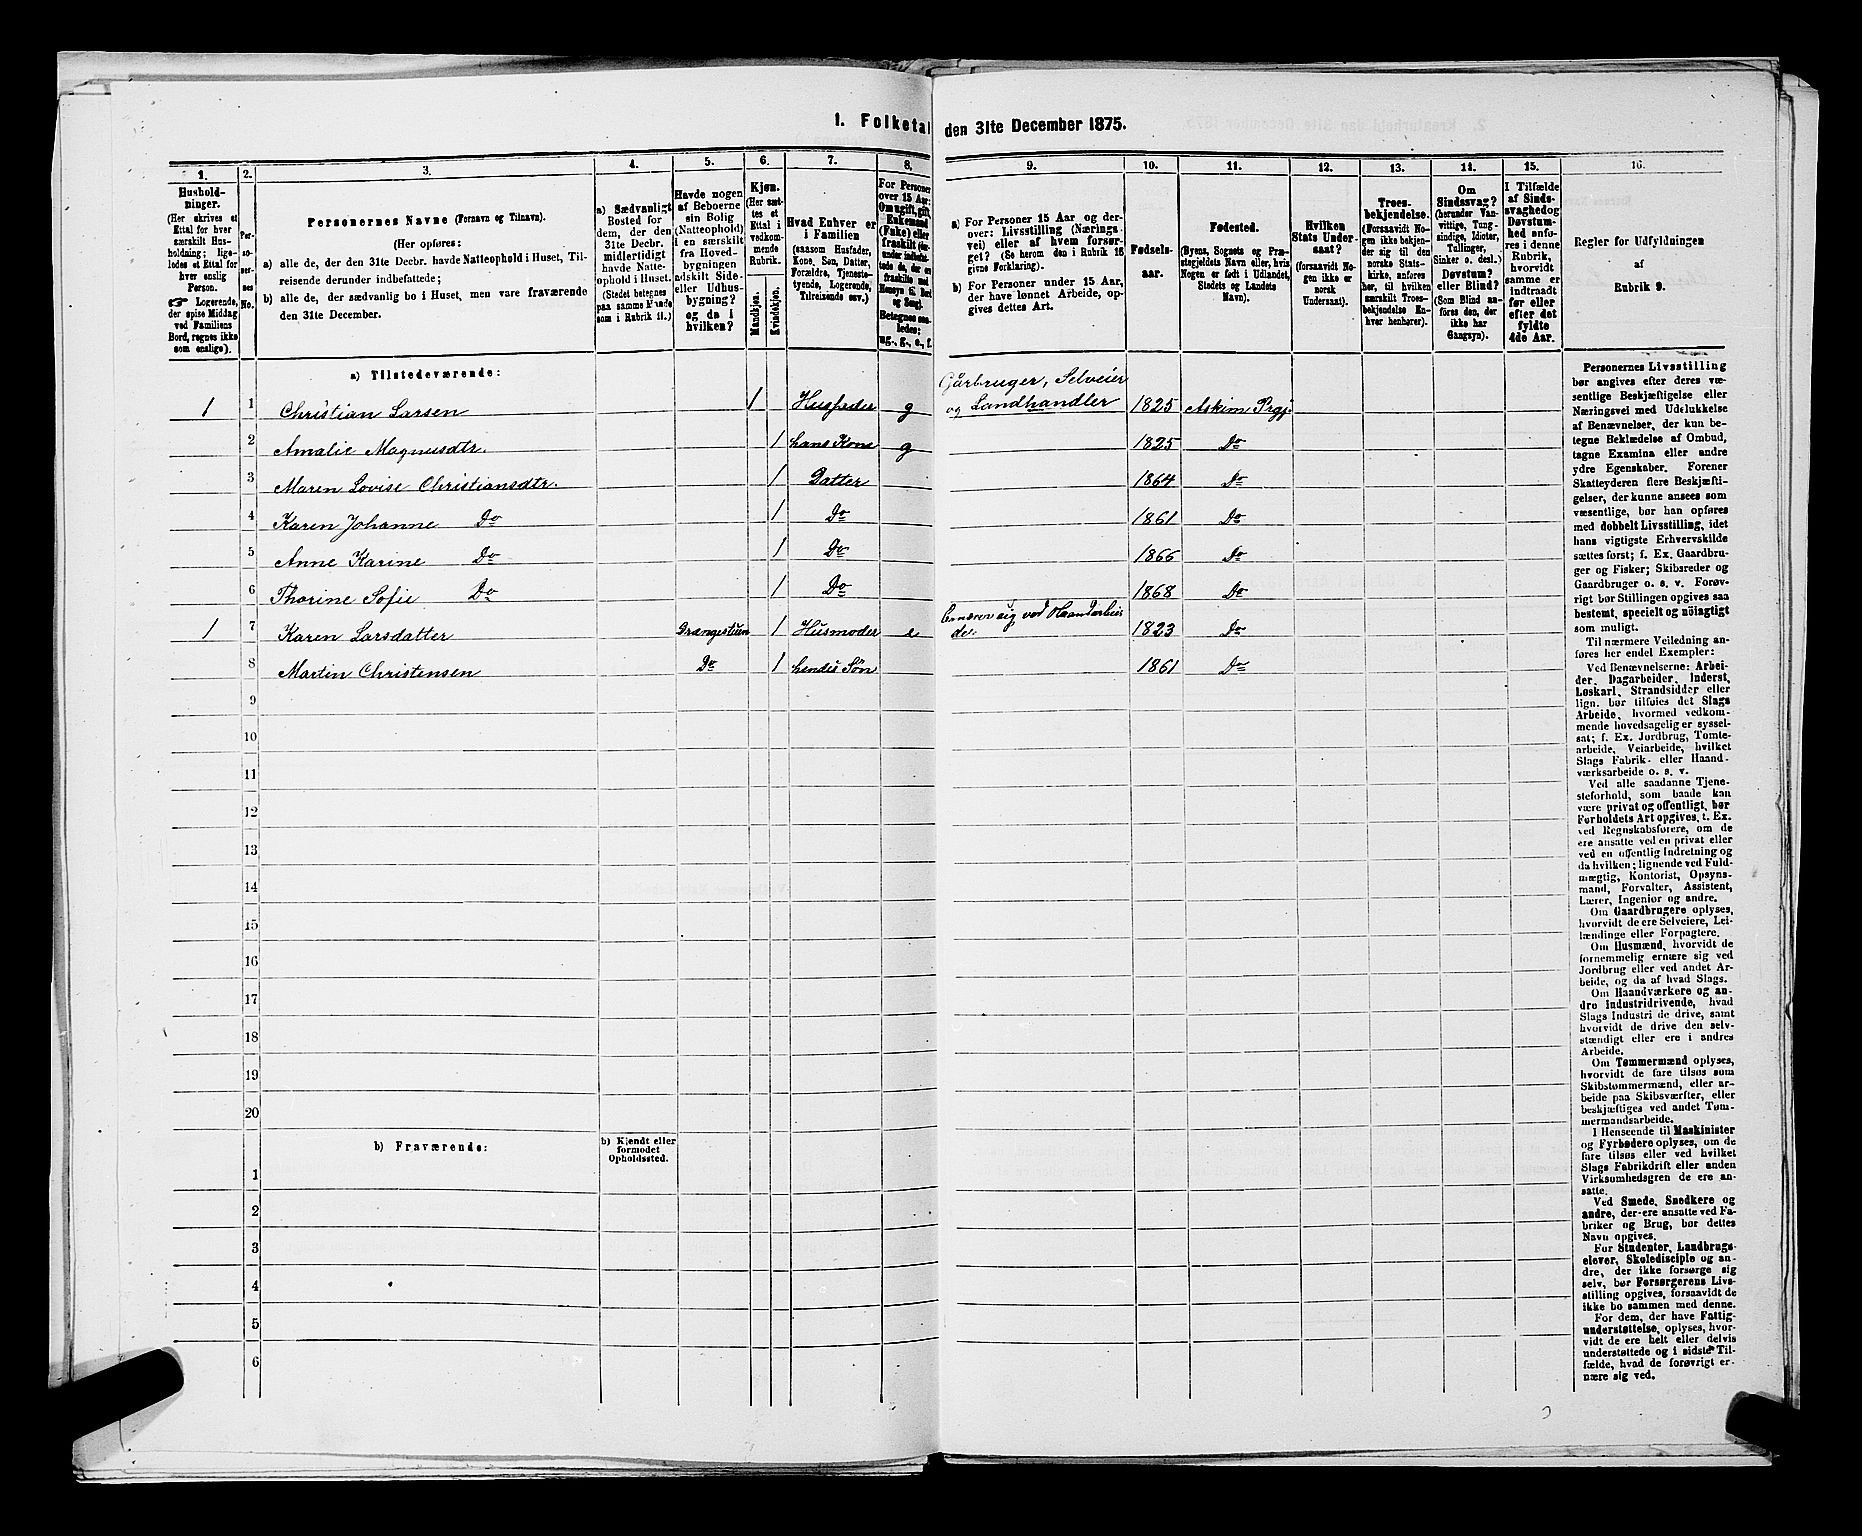 1. Folketal den 31te December 1875.
1. 2. 3. 4. 5. 6. 7. 8. 9. 10. 11. 12. 13. 14. 15. 16.
Hushold-
ninger.
(Her skrives et
Ettal for hver
særskilt Hus-
holdning; lige-
ledes et Ettal for
hver enslig
Person.
☞ Logerende,
der spise Middag
ved Familiens
Bord, regnes ikke
som enslige).
Per-
so-
ner-
nes
No.
Personernes Navne (Fornavn og Tilnavn).
(Her opføres:
a) alle de, der den 31te Decbr. havde Natteophold i Huset, Til-
reisende derunder indbefattede;
b) alle de, der sædvanlig bo i Huset, men vare fraværende
den 31te December.
a) Sædvanligt
Bosted for
dem, der den
31te Decbr.
midlertidigt
havde Natte-
ophold i Huset.
(Stedet betegnes
paa samme Maade
som i Rubrik 11.)
Havde nogen
af Beboerne
sin Bolig
(Natteophold)
i en særskilt
fra Hoved-
bygningen
adskilt Side-
eller Udhus-
bygning?
og da i
hvilken?
Kjøn.
(Her sæt-
tes et
Ettal i
vedkom-
mende
Rubrik.
Mandkjøn.
Kvindekjøn.
Hvad Enhver er
i Familien
(saasom Husfader,
Kone, Søn, Datter,
Forældre, Tjeneste-
tyende, Logerende,
Tilreisende osv.)
For Personer
over 15 Aar:
Om ugift, gift,
Enkemand
(Enke) eller
fraskilt
Betegnes saa-
ledes:
ug., g., e., f.
a) For Personer 15 Aar og der-
over: Livsstilling (Nærings-
vei) eller af hvem forsør-
get? (Se herom den i Rubrik 16
givne Forklaring).
b) For Personer under 15 Aar,
der have lønnet Arbeide, op-
gives dettes Art.
Fødsels-
aar.
Fødested.
(Byens, Sognets og Præ-
stegjeldets Navn eller, hvis
Nogen er født i Udlandet,
Stedets og Landets
Navn).
Hvilken
Stats Under-
saat?
(forsaavidt No-
gen ikke er
norsk
Undersaat).
Troes-
bekjendelse.
(Forsaavidt No-
gen ikke bekjen-
der sig til den
norske Stats-
kirke, anføres
her, til hvilken
særskilt Troes-
bekjendelse En-
hver henhører).
Om
Sindssvag?
(herunder Van-
vittige, Tung-
sindige, Idioter,
Tullinger,
Sinker o. desl.)
Døvstum?
eller Blind?
(Som Blind an-
føres den, der
ikke har
Gangsyn).
I Tilfælde
af Sinds-
svaghed og
Døvstum-
hed anfø-
res i denne
Rubrik,
hvorvidt
samme er
indtraadt
før eller
efter det
fyldte
4de Aar.
Regler for Udfyldningen
af
Rubrik 9.
a) Tilstedeværende:
Gårbruger, Selveier
1 1 Christian Larsen 1 Husfader g og Landhandler 1825 Askim Prgj.
2 Amalie Magnusdtr. 1 hans Kone g 1825 Do
3 Maren Lovise Christiansdtr. 1 Datter 1864 Do
4 Karen Johanne Do 1 Do 1861 Do
5 Anne Karine Do 1 Do 1866 Do
6 Thorine Sofie Do 1 Do 1868 Do
Ernærer sig ved Haandarbei
1 7 Karen Larsdatter 1 Husmoder e de. 1823 Do
8 Martin Christensen Do 1 hendes Søn 1861 Do
9
10
11
12
13
14
15
16
17
18
19
20
b) Fraværende:
b) Kjendt eller
formodet
Opholdssted.
1
2
3
4
5
6
Personernes Livsstilling
bør angives efter deres væ-
sentlige Beskjæftigelse eller
Næringsvei med Udelukkelse
af Benævnelser, der kun be-
tegne Beklædelse af Ombud,
tagne Examina eller andre
ydre Egenskaber. Forener
Skatteyderen flere Beskjæfti-
gelser, der kunne ansees som
væsentlige, bør han opføres
med dobbelt Livsstilling, idet
hans vigtigste Erhvervskilde
sættes først; f. Ex. Gaardbru-
ger og Fisker; Skibsreder og
Gaardbruger o. s. v. Forøv-
rigt bør Stillingen opgives saa
bestemt, specielt og nöiagtigt
som muligt.
Til nærmere Veiledning an-
føres her endel Exempler:
Ved Benævnelserne: Arbei-
der, Dagarbeider, Inderst,
Løskarl, Strandsidder eller
lign. bør tilføies det Slags
Arbeide, hvormed vedkom-
mende hovedsagelig er syssel-
sat; f. Ex. Jordbrug, Tomte-
arbeide, Veiarbeide, hvilket
Slags Fabrik- eller Haand-
værksarbeide o. s. v.
Ved alle saadanne Tjene-
steforhold, som baade kan
være privat og offentligt, bør
Forholdets Art opgives, t. Ex.
ved Regnskabsførere, om de
ere ansatte ved en privat eller
ved en offentlig Indretning og
da hvilken; lignende ved Fuld-
mægtig, Kontorist, Opsyns-
mand, Forvalter, Assistent,
Lærer, Ingeniør og andre.
Om Gaardbrugere oplyses,
hvorvidt de ere Selveiere, Lei-
lændinge eller Forpagtere.
Om Husmænd, hvorvidt de
fornemmelig ernære sig ved
Jordbrug eller ved andet Ar-
beide, og da af hvad Slags.
Om Haandværkere og an-
dre Industridrivende, hvad
Slags Industri de drive, samt
hvorvidt de drive den selv-
stændigt eller ere i andres
Arbeide.
Om Tømmermænd oplyses,
hvorvidt de fare tilsøs som
Skibstømmermænd, eller ar-
beide paa Skibsværfter, eller
beskjæftiges ved andet Tøm-
mermandsarbeide.
I Henseende til Maskinister
og Fyrbødere oplyses, om de
fare tilsøs eller ved hvilket
Slags Fabrikdrift eller anden
Virksomhedsgren de ere an-
satte.
Ved Smede, Snedkere og
andre, der ere ansatte ved Fa-
briker og Brug, bør dettes
Navn opgives.
For Studenter, Landbrugs-
elever, Skoledisciple og an-
dre, der ikke forsørge sig
selv, bør Forsørgerens Livs-
stilling opgives, forsaavidt de
ikke bo sammen med denne.
For dem, der have Fattig-
understøttelse, oplyses, hvor-
vidt de ere helt eller delvis
understøttede og i sidste Til-
fælde, hvad de forøvrigt er-
nære sig ved.